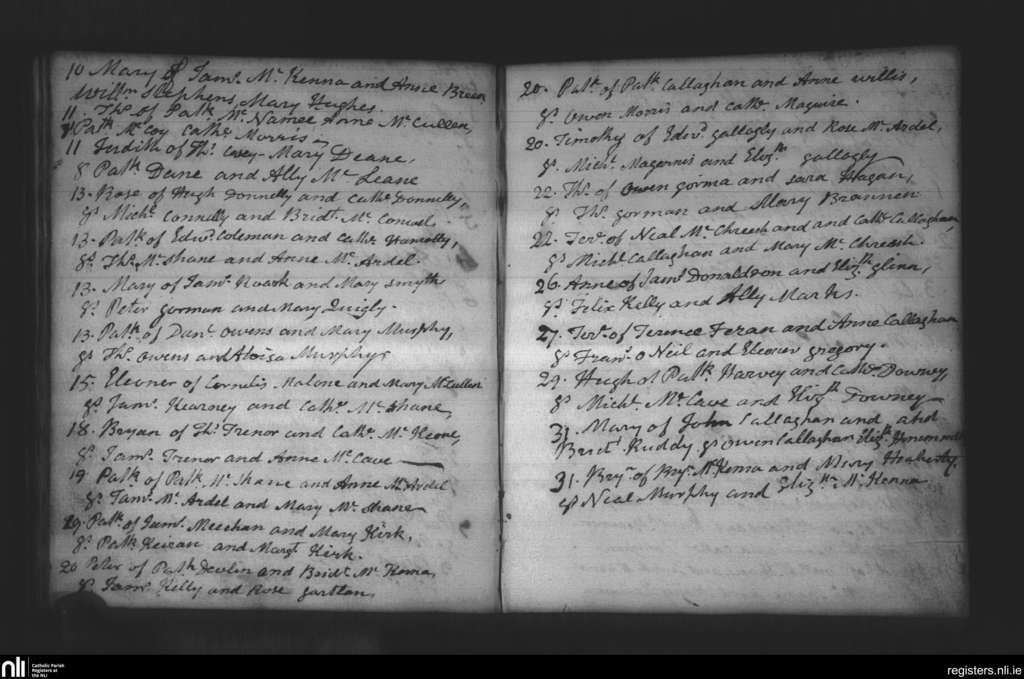 10 Mary of Jams. Mc Kenna and Anne Breen
Willm Stephens, Mary Hughes.
11. Ths. of Patk. Mc Namee Anne Mc Cullen,
Patk. Mc Coy Cathe. Morris
11 Judith of Ths. Casey - Mary Deane,
8 Patk. Dane and Ally Mc Leane
13. Rose of Hugh Donnelly and Cathe. Donnelly,
gs. Michl. Connelly and Bridt. Mc Conwel.
13. Patk. of Edwd. Coleman and Cathe.
gs. Ths. Mc Shane and Anne Mc Ardel.
13. Mary of Jams. Roark and Mary Smyth
gs. Peter gorman and Mary Quigly.
13. Patk. of Danl. Owens and Mary Murphy,
gs. Ths. Owens and Murphy
15. Eleoner of Cornelis Malone and Mary McCullen
gs. Jams. Kearney and Cathe. Mc Shane,
18. Bryan of Ths. Trenor and Cathe. Mc Keone,
gs. Jams. Trenor and Anne Mc Cave
19 Patk. of Patk. Mc Shane and Anne Mc Ardel
gs. Jams. Mc Ardel and Mary Mc Shane
19. Patk. of Jams. Meechan and Mary Kirk,
gs. Patk. Keiran and Margt. Kirk.
20 Peter of Patk. Devlin and Bridt. Mc Kenna,
gs. Jams. Kelly and Rose gartlan,
20. Patk. of Patk. Callaghan and Anne Willis,
gs. Owen Morris and Cathe. Maguire.
20. Timothy of Edwd. gallogly and Rose Mc Ardel,
gs. Michl. Magennis and Elizth. gallogly
22. Ths. of Owen gorma and Sara Hagan,
gs. Ths. gorman and Mary Brannen
22. Tere. of Neal Mc Chreesh and and Cathe. Callaghan,
gs Michl. Callaghan and Mary Mc Chreesh.
26. Anne of Jams. Donaldson and Elizth. glinn,
gs. Felix Kelly and Ally Marks.
27. Tere. of Terence Feran and Anne Callaghan
gs Frans. O Neil and Eleoner gregory.
29. Hugh of Patk. Harvey and Cathe. Downey,
gs Michl. Mc Cave and Elizth. Downey
31. Mary of John Callaghan and and
Bridt. Ruddy gs Owen Callaghan Elizth.
31. Bryn. of Bryn. Mc Kenna and Mary
gs Neal Murphy and Elizth. Mc Kenna
nli
Catholic Parish
Registers at
the NLI
registers.nli.ie